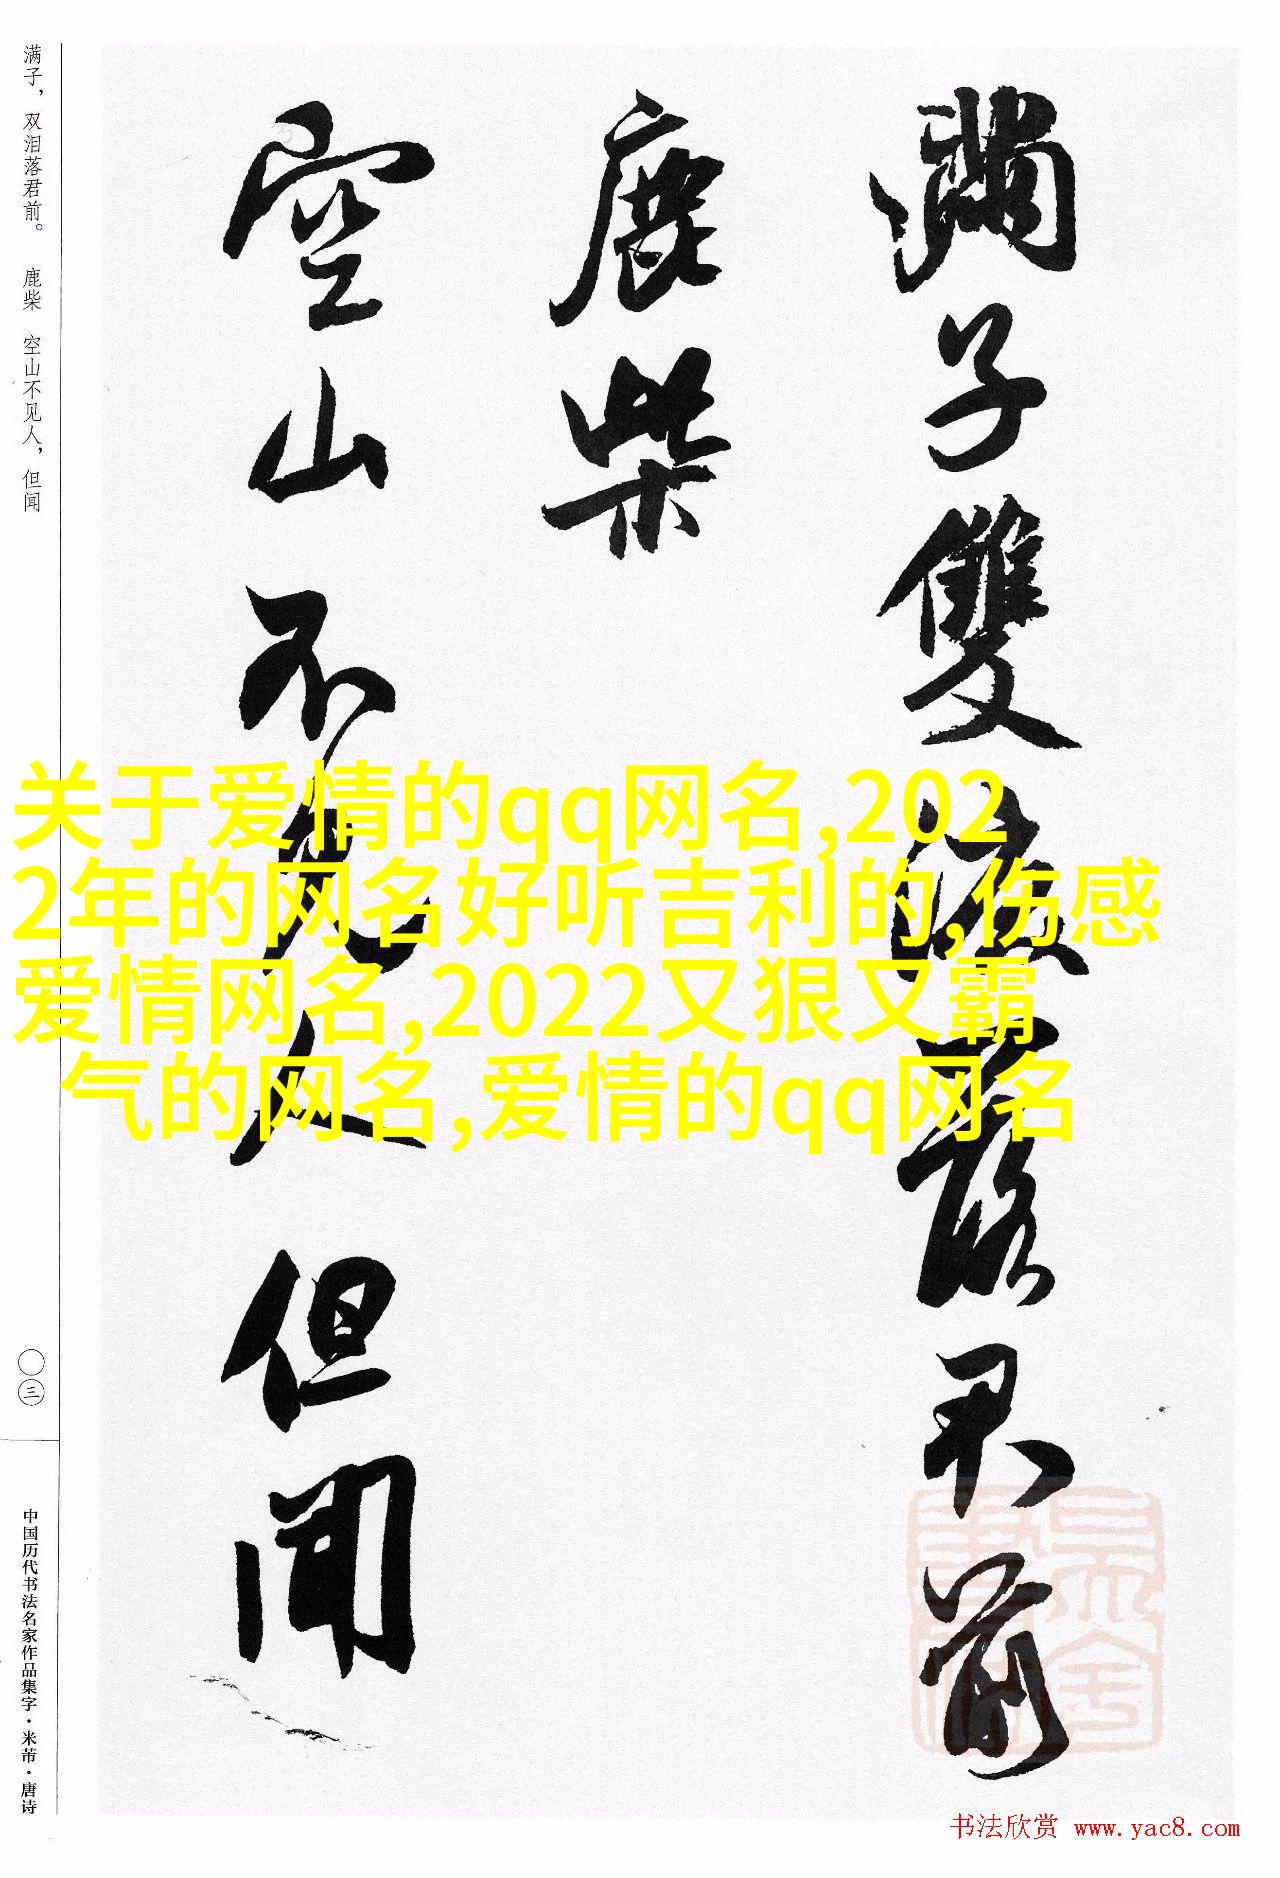 滿子雙淚落君前
鹿柴
空山不見人但聞
满子，双泪落君前。 鹿柴 空山不见人，但闻
〇三
中国历代书法名家作品集字·米芾·唐诗
关于爱情的qq网名,202
2年的网名好听吉利的,伤感
爱情网名,2022又狠又霸
气的网名,爱情的qq网名
书法欣赏 www.yac8.com